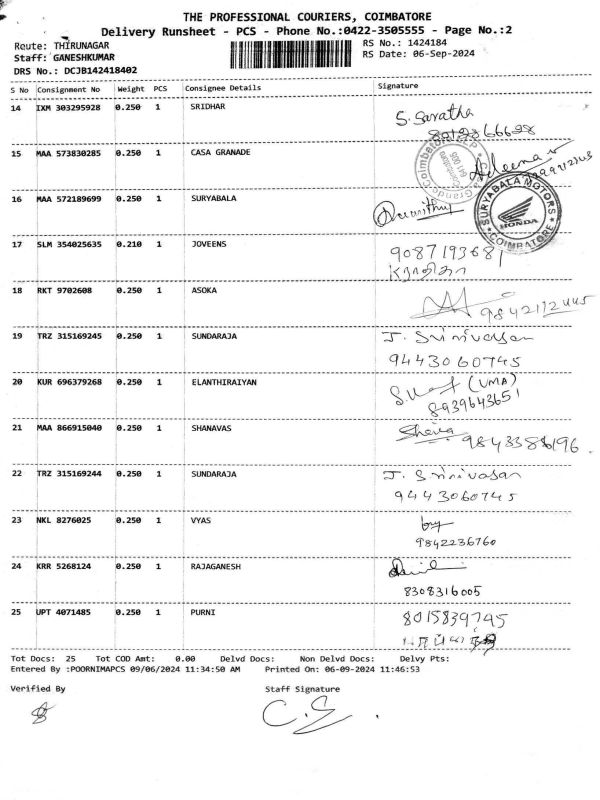 THE PROFESSIONAL COURIERS, COIMBATORE
Delivery Runsheet - PCS - Phone No.:0422-3505555 - Page No.:2
Route: THIRUNAGAR RS No.: 1424184
Staff: GANESHKUMAR RS Date: 06-Sep-2024
DRS No.: DCJB142418402
S No Consignment No Weight PCS Consignee Details Signature
14 IXM 303295928 0.250 1 SRIDHAR S. Saratha
15 MAA 573830285 0.250 1 CASA GRANADE
16 MAA 572189699 0.250 1 SURYABALA
SURYABALA MOTORS
HONDA
COIMBATORE
17 SLM 354025635 0.210 1 JOVEENS 9087193681
18 RKT 9702608 0.250 1 ASOKA
19 TRZ 315169245 0.250 1 SUNDARAJA J. Srinivasan
9443060745
20 KUR 696379268 0.250 1 ELANTHIRAIYAN (UMA)
8939643651
21 MAA 866915040 0.250 1 SHANAVAS
22 TRZ 315169244 0.250 1 SUNDARAJA J. Srinivasan
9443060745
23 NKL 8276025 0.250 1 VYAS
9842236760
24 KRR 5268124 0.250 1 RAJAGANESH
8308316005
25 UPT 4071485 0.250 1 PURNI 8015839745
Tot Docs: 25 Tot COD Amt: 0.00 Delvd Docs: Non Delvd Docs: Delvy Pts:
Entered By :POORNIMAPCS 09/06/2024 11:34:50 AM Printed On: 06-09-2024 11:46:53
Verified By Staff Signature